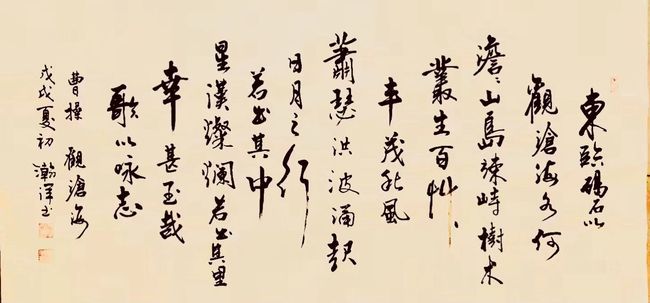 東臨碣石以
觀滄海水何
澹〻山島竦峙樹木
叢生百艸
丰茂秋風
蕭瑟洪波涌起
日月之行
若出其中
星漢燦爛若出其里
幸甚至哉
歌以咏志
曹操 觀滄海
戊戌夏初 瀚洋书